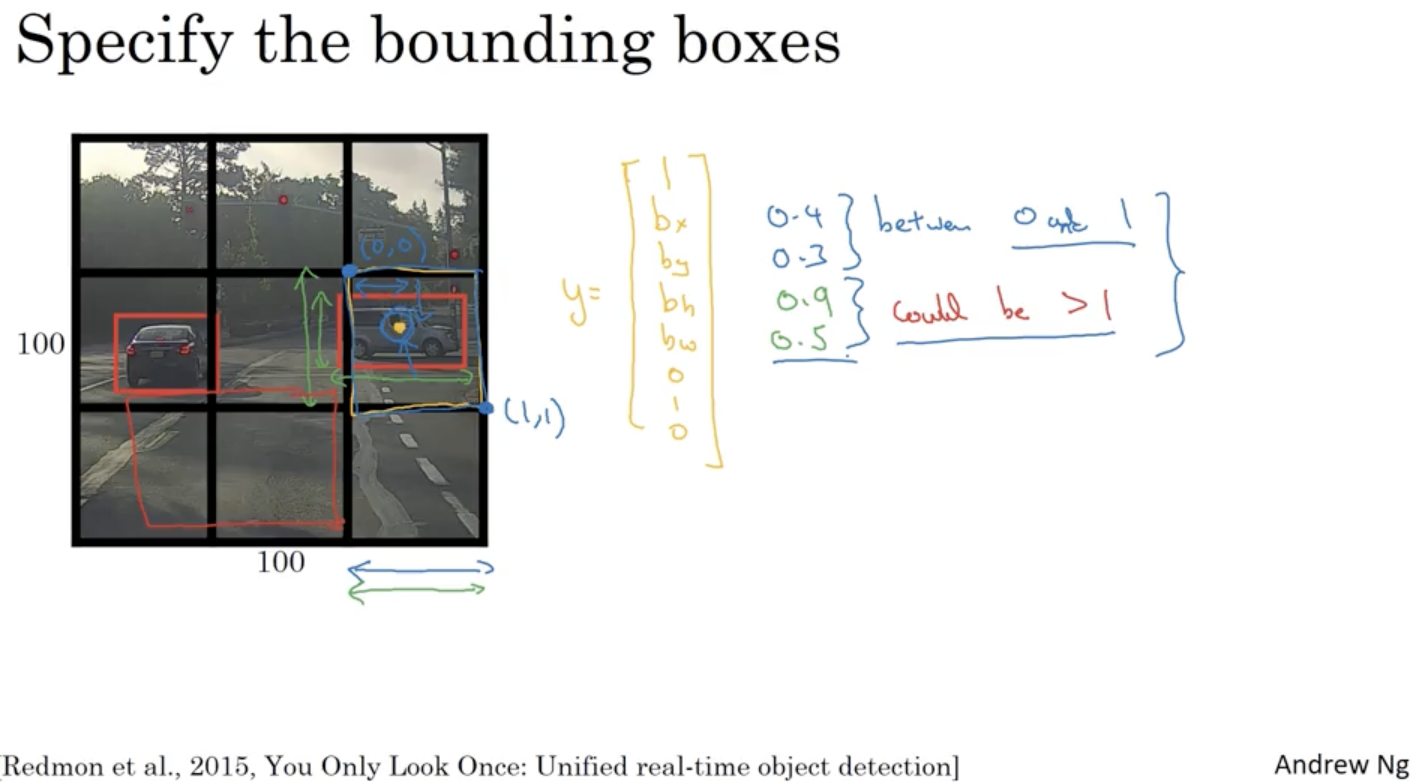 Specify the bounding boxes
(0,0)
100
(1,1)
100
y=
1
bx
by
bh
bw
0
1
0
0.4
0.3
between 0 and 1
0.9
0.5
could be > 1
[Redmon et al., 2015, You Only Look Once: Unified real-time object detection]
Andrew Ng